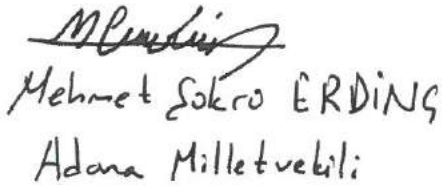 Mehmet Şükrü ERDİNÇ
Adana Milletvekili